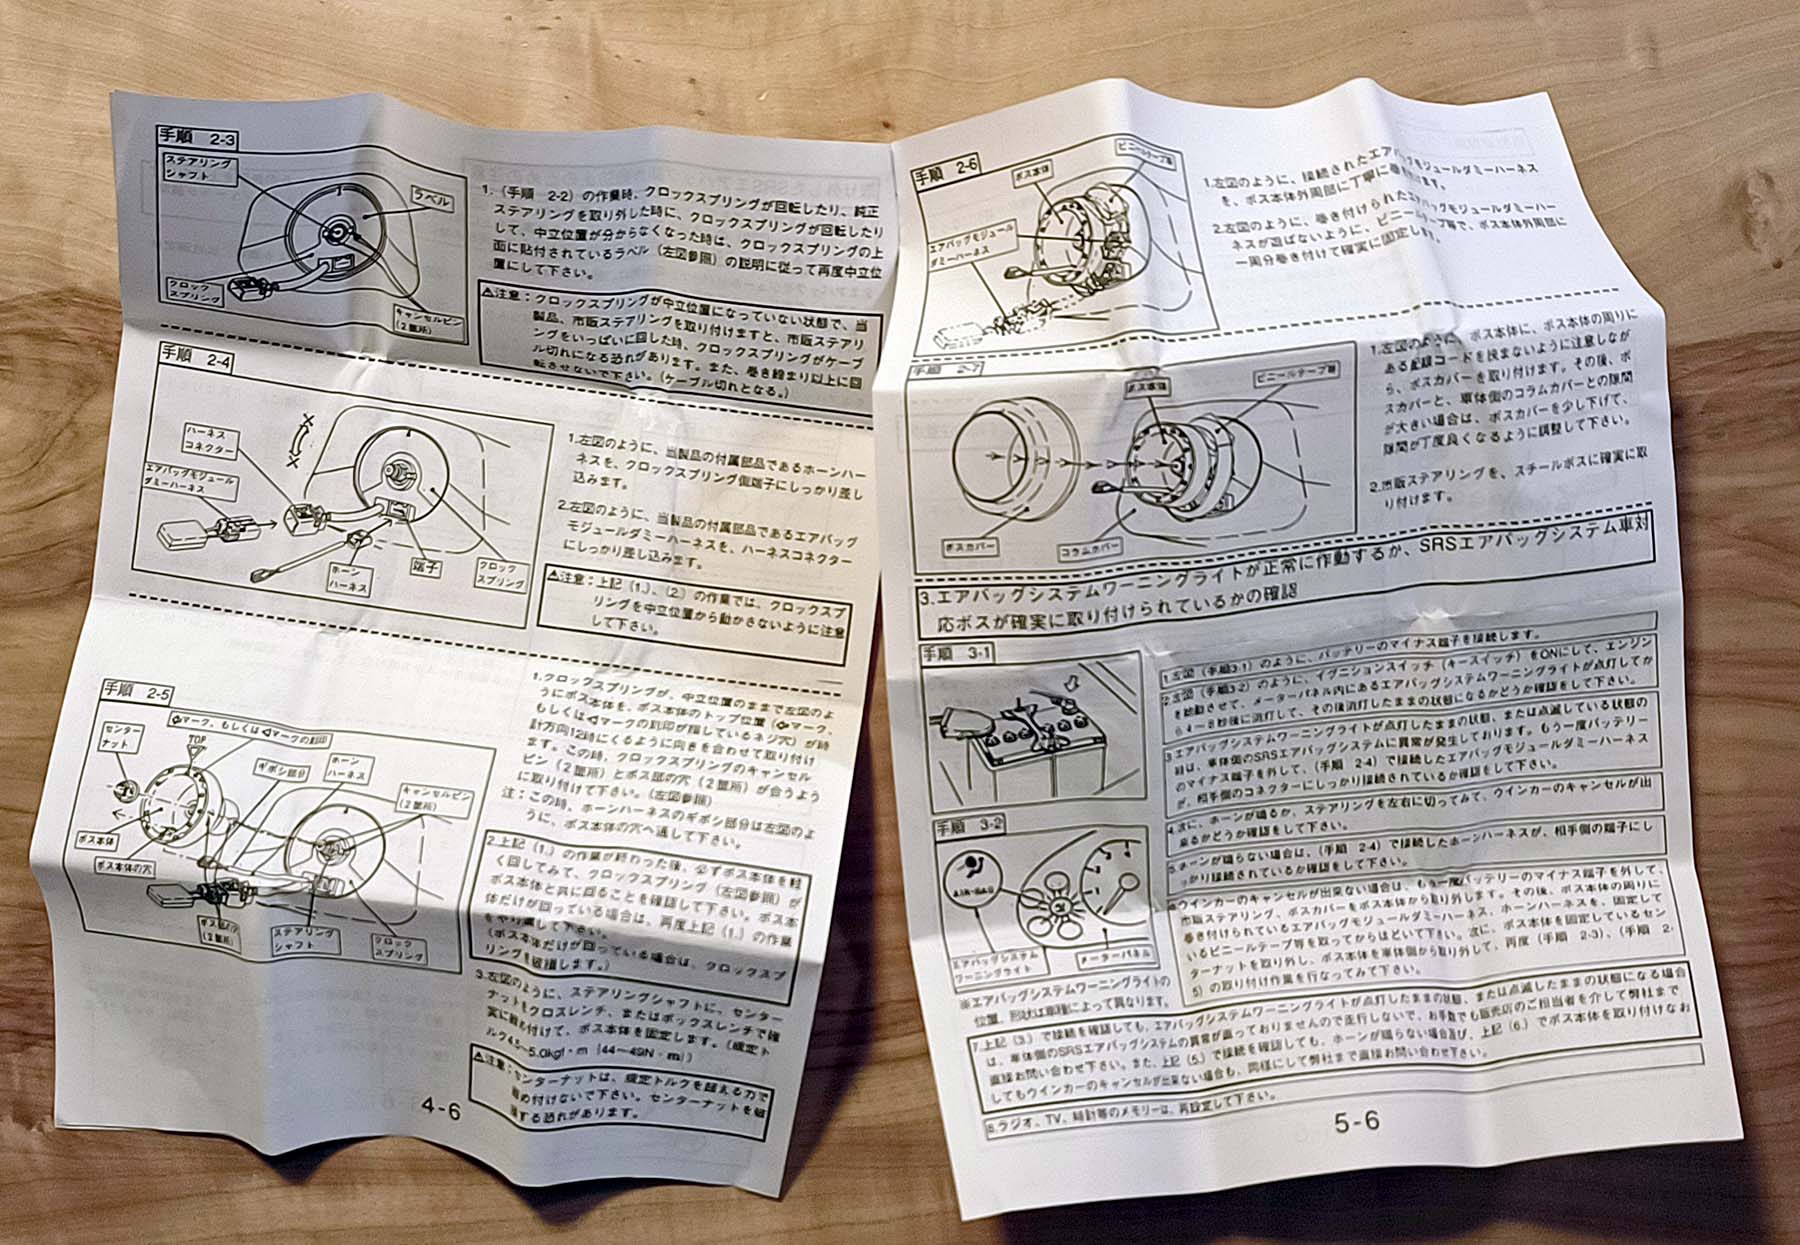 手順 2-3
ステアリング
シャフト
ラベル
クロック
スプリング
キャンセルピン
(2箇所)
1.(手順 2-2)の作業時、クロックスプリングが回転したり、純正
ステアリングを取り外した時に、クロックスプリングが回転したり
して、中立位置が分からなくなった時は、クロックスプリングの上
面に貼付されているラベル(左図参照)の説明に従って再度中立位
置にして下さい。
⚠注意:クロックスプリングが中立位置になっていない状態で、当
製品、市販ステアリングを取り付けますと、市販ステアリ
ングをいっぱいに回した時、クロックスプリングがケーブ
ル切れになる恐れがあります。また、巻き締まり以上に回
転させないで下さい。(ケーブル切れとなる。)
手順 2-4
ハーネス
コネクター
エアバッグモジュール
ダミーハーネス
ホーン
ハーネス
端子
クロック
スプリング
1.左図のように、当製品の付属部品であるホーンハー
ネスを、クロックスプリング側端子にしっかり差し
込みます。
2.左図のように、当製品の付属部品であるエアバッグ
モジュールダミーハーネスを、ハーネスコネクター
にしっかり差し込みます。
⚠注意:上記(1.)、(2.)の作業では、クロックスプ
リングを中立位置から動かさないように注意
して下さい。
手順 2-5
センター
ナット
⇦マーク、もしくは◁マークの刻印
TOP
ギボシ部分
ホーン
ハーネス
キャンセルピン
(2箇所)
ボス本体
ボス本体の穴
ボス部の穴
(2箇所)
ステアリング
シャフト
クロック
スプリング
1.クロックスプリングが、中立位置のままで左図のよ
うにボス本体を、ボス本体のトップ位置(⇦マーク、
もしくは◁マークの刻印が指しているネジ穴)が時
計方向12時にくるように向きを合わせて取り付け
ます。この時、クロックスプリングのキャンセル
ピン(2箇所)とボス部の穴(2箇所)が合うよう
に取り付けて下さい。(左図参照)
注:この時、ホーンハーネスのギボシ部分は左図のよ
うに、ボス本体の穴へ通して下さい。
2.上記(1.)の作業が終わった後、必ずボス本体を軽
く回してみて、クロックスプリング(左図参照)が
ボス本体と共に回ることを確認して下さい。ボス本
体だけが回っている場合は、再度上記(1.)の作業
をやり直して下さい。
(ボス本体だけが回っている場合は、クロックスプ
リングを破損します。)
3.左図のように、ステアリングシャフトに、センター
ナットをクロスレンチ、またはボックスレンチで確
実に締め付けて、ボス本体を固定します。(規定ト
ルク4.5〜5.0kgf・m {44〜49N・m})
⚠注意:センターナットは、規定トルクを越える力で
締め付けないで下さい。センターナットを破
損する恐れがあります。
4-6
手順 2-6
ボス本体
ビニールテープ等
エアバッグモジュール
ダミーハーネス
1.左図のように、接続されたエアバッグモジュールダミーハーネス
を、ボス本体外周部に丁寧に巻き付けます。
2.左図のように、巻き付けられたエアバッグモジュールダミーハー
ネスが遊ばないように、ビニールテープ等で、ボス本体外周部に
一周分巻き付けて確実に固定します。
手順 2-7
ボス本体
ビニールテープ等
ボスカバー
コラムカバー
1.左図のように、ボス本体に、ボス本体の周りに
ある配線コードを挟まないように注意しなが
ら、ボスカバーを取り付けます。その後、ボ
スカバーと、車体側のコラムカバーとの隙間
が大きい場合は、ボスカバーを少し下げて、
隙間が丁度良くなるように調整して下さい。
2.市販ステアリングを、スチールボスに確実に取
り付けます。
3.エアバッグシステムワーニングライトが正常に作動するか、SRSエアバッグシステム車対
応ボスが確実に取り付けられているかの確認
手順 3-1
手順 3-2
AIR-BAG
エアバッグシステム
ワーニングライト
メーターパネル
※エアバッグシステムワーニングライトの
位置、形状は車種によって異なります。
1.左図(手順3-1)のように、バッテリーのマイナス端子を接続します。
2.左図(手順3-2)のように、イグニションスイッチ(キースイッチ)をONにして、エンジン
を始動させて、メーターパネル内にあるエアバッグシステムワーニングライトが点灯してか
ら4〜8秒後に消灯して、その後消灯したままの状態になるかどうか確認をして下さい。
3.エアバッグシステムワーニングライトが点灯したままの状態、または点滅している状態の
時は、車体側のSRSエアバッグシステムに異常が発生しております。もう一度バッテリー
のマイナス端子を外して、(手順 2-4)で接続したエアバッグモジュールダミーハーネス
が、相手側のコネクターにしっかり接続されているか確認をして下さい。
4.次に、ホーンが鳴るか、ステアリングを左右に切ってみて、ウインカーのキャンセルが出
来るかどうか確認をして下さい。
5.ホーンが鳴らない場合は、(手順 2-4)で接続したホーンハーネスが、相手側の端子にし
っかり接続されているか確認をして下さい。
6.ウインカーのキャンセルが出来ない場合は、もう一度バッテリーのマイナス端子を外して、
市販ステアリング、ボスカバーをボス本体から取り外します。その後、ボス本体の周りに
巻き付けられているエアバッグモジュールダミーハーネス、ホーンハーネスを、固定して
いるビニールテープ等を取ってからほどいて下さい。次に、ボス本体を固定しているセン
ターナットを取り外し、ボス本体を車体側から取り外して、再度(手順 2-3)、(手順 2-
5)の取り付け作業を行なってみて下さい。
7.上記(3.)で接続を確認しても、エアバッグシステムワーニングライトが点灯したままの状態、または点滅したままの状態になる場合
は、車体側のSRSエアバッグシステムの異常が直っておりませんので走行しないで、お手数でも販売店のご担当者を介して弊社まで
直接お問い合わせ下さい。また、上記(5.)で接続を確認しても、ホーンが鳴らない場合及び、上記(6.)でボス本体を取り付けなお
してもウインカーのキャンセルが出来ない場合も、同様にして弊社まで直接お問い合わせ下さい。
8.ラジオ、TV、時計等のメモリーは、再設定して下さい。
5-6